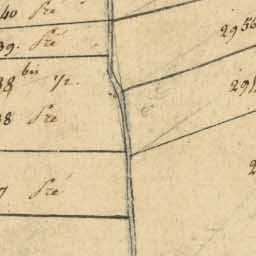 40 Pré
39. Pré
38 bis ½.
38 Pré
7 Pré
295
29
2